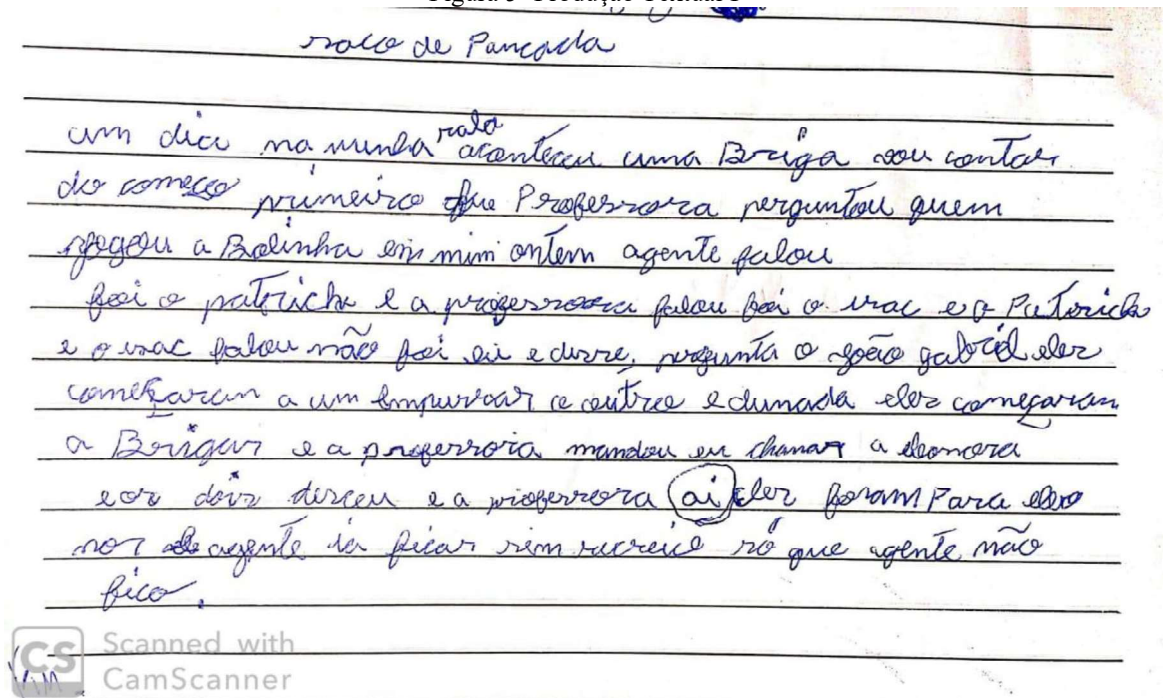 saco de Pancada
um dia na minha sala aconteceu uma Briga vou contar
do começo primeiro que Professora perguntou quem
jogou a Bolinha em mim ontem agente falou
foi o patrick e a professora falou foi o isac e o Patrick
e o isac falou não foi eu e disse, pergunta o joão gabriel eles
começaram a um empurrar o outro e dunada eles começaram
a Brigar e a professora mandou eu chamar a eleonora
e os dois desceu e a professora ai eles foram Para
nos agente ia ficar sem recreio só que agente não
fico.
CS Scanned with
CamScanner